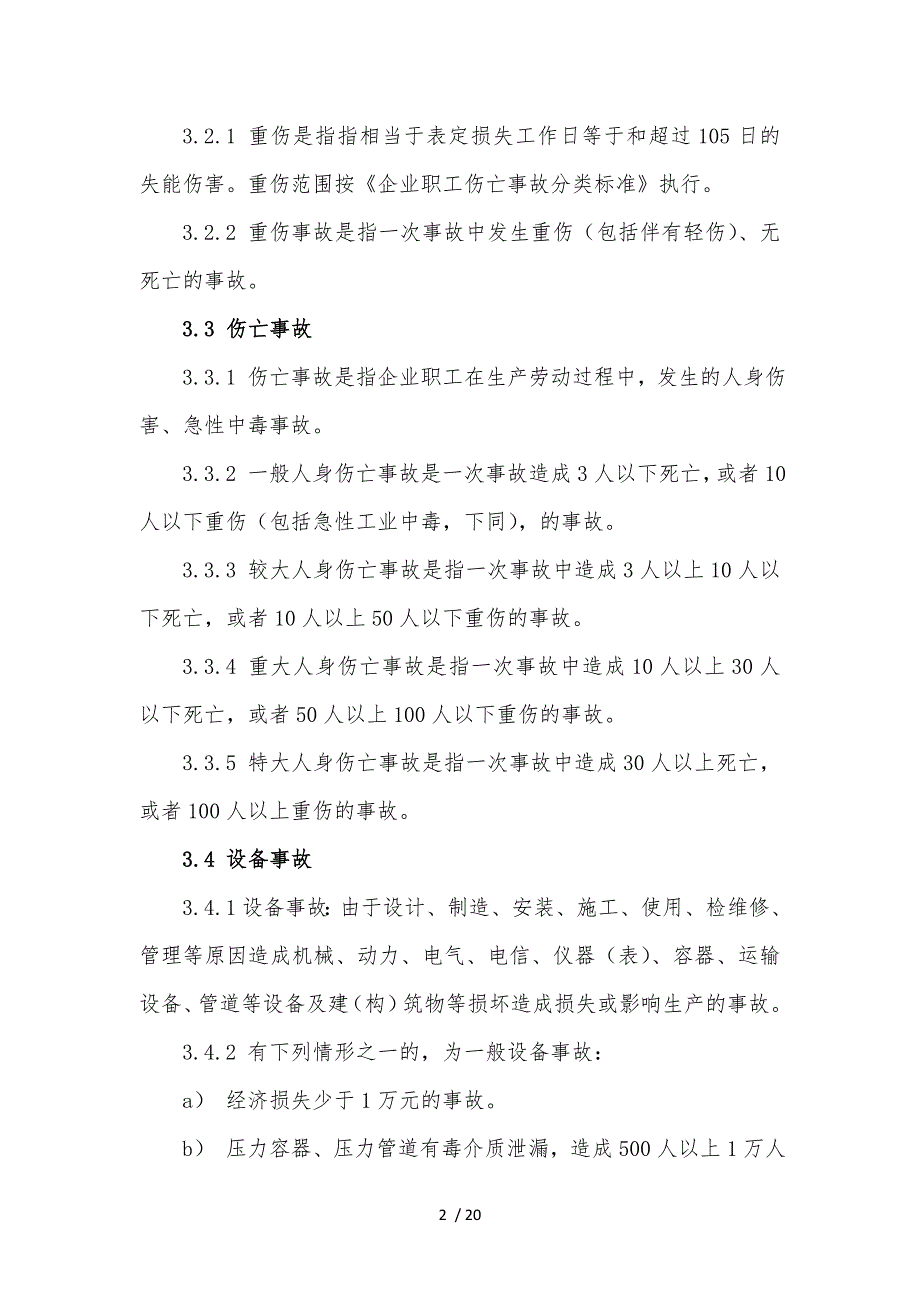 3.2.1 重伤是指指相当于表定损失工作日等于和超过 105 日的
失能伤害。重伤范围按《企业职工伤亡事故分类标准》执行。
3.2.2 重伤事故是指一次事故中发生重伤（包括伴有轻伤）、无
死亡的事故。
3.3 伤亡事故
3.3.1 伤亡事故是指企业职工在生产劳动过程中，发生的人身伤
害、急性中毒事故。
3.3.2 一般人身伤亡事故是一次事故造成 3 人以下死亡，或者 10
人以下重伤（包括急性工业中毒，下同），的事故。
3.3.3 较大人身伤亡事故是指一次事故中造成 3 人以上 10 人以
下死亡，或者 10 人以上 50 人以下重伤的事故。
3.3.4 重大人身伤亡事故是指一次事故中造成 10 人以上 30 人
以下死亡，或者 50 人以上 100 人以下重伤的事故。
3.3.5 特大人身伤亡事故是指一次事故中造成 30 人以上死亡，
或者 100 人以上重伤的事故。
3.4 设备事故
3.4.1 设备事故：由于设计、制造、安装、施工、使用、检维修、
管理等原因造成机械、动力、电气、电信、仪器（表）、容器、运输
设备、管道等设备及建（构）筑物等损坏造成损失或影响生产的事故。
3.4.2 有下列情形之一的，为一般设备事故：
a） 经济损失少于 1 万元的事故。
b） 压力容器、压力管道有毒介质泄漏，造成 500 人以上 1 万人
2 / 20